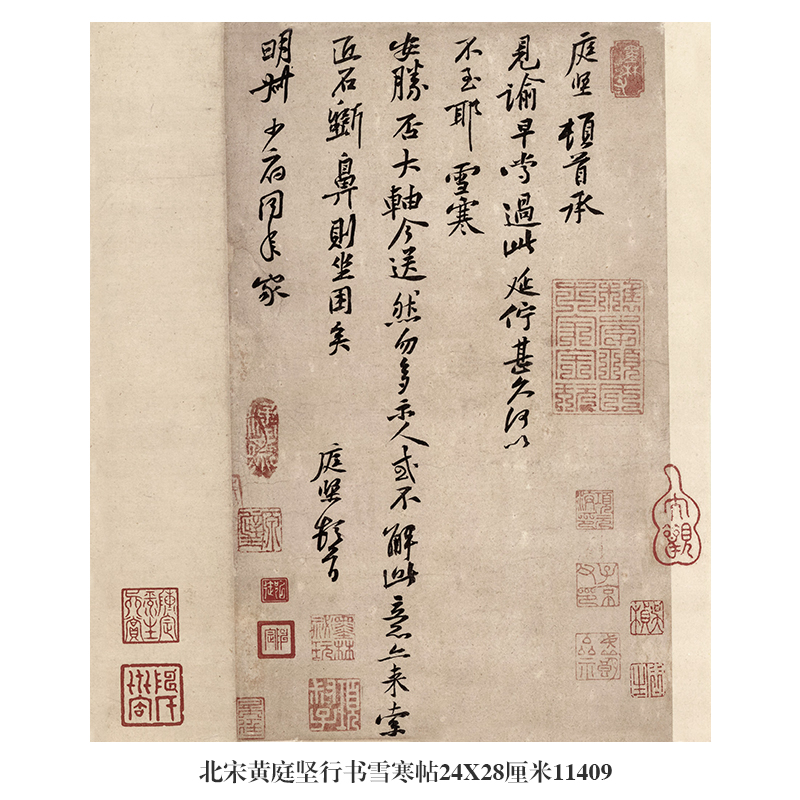 庭堅頓首承
見諭早嘗過此延佇甚久何以
不至耶雪寒
安勝否大軸今送然勿多示人或不解此意亦来索
匠石斲鼻則坐困矣
庭堅頓首
明叔少府同年家
子京父印
墨林祕玩
項叔子
北宋黄庭坚行书雪寒帖24X28厘米11409